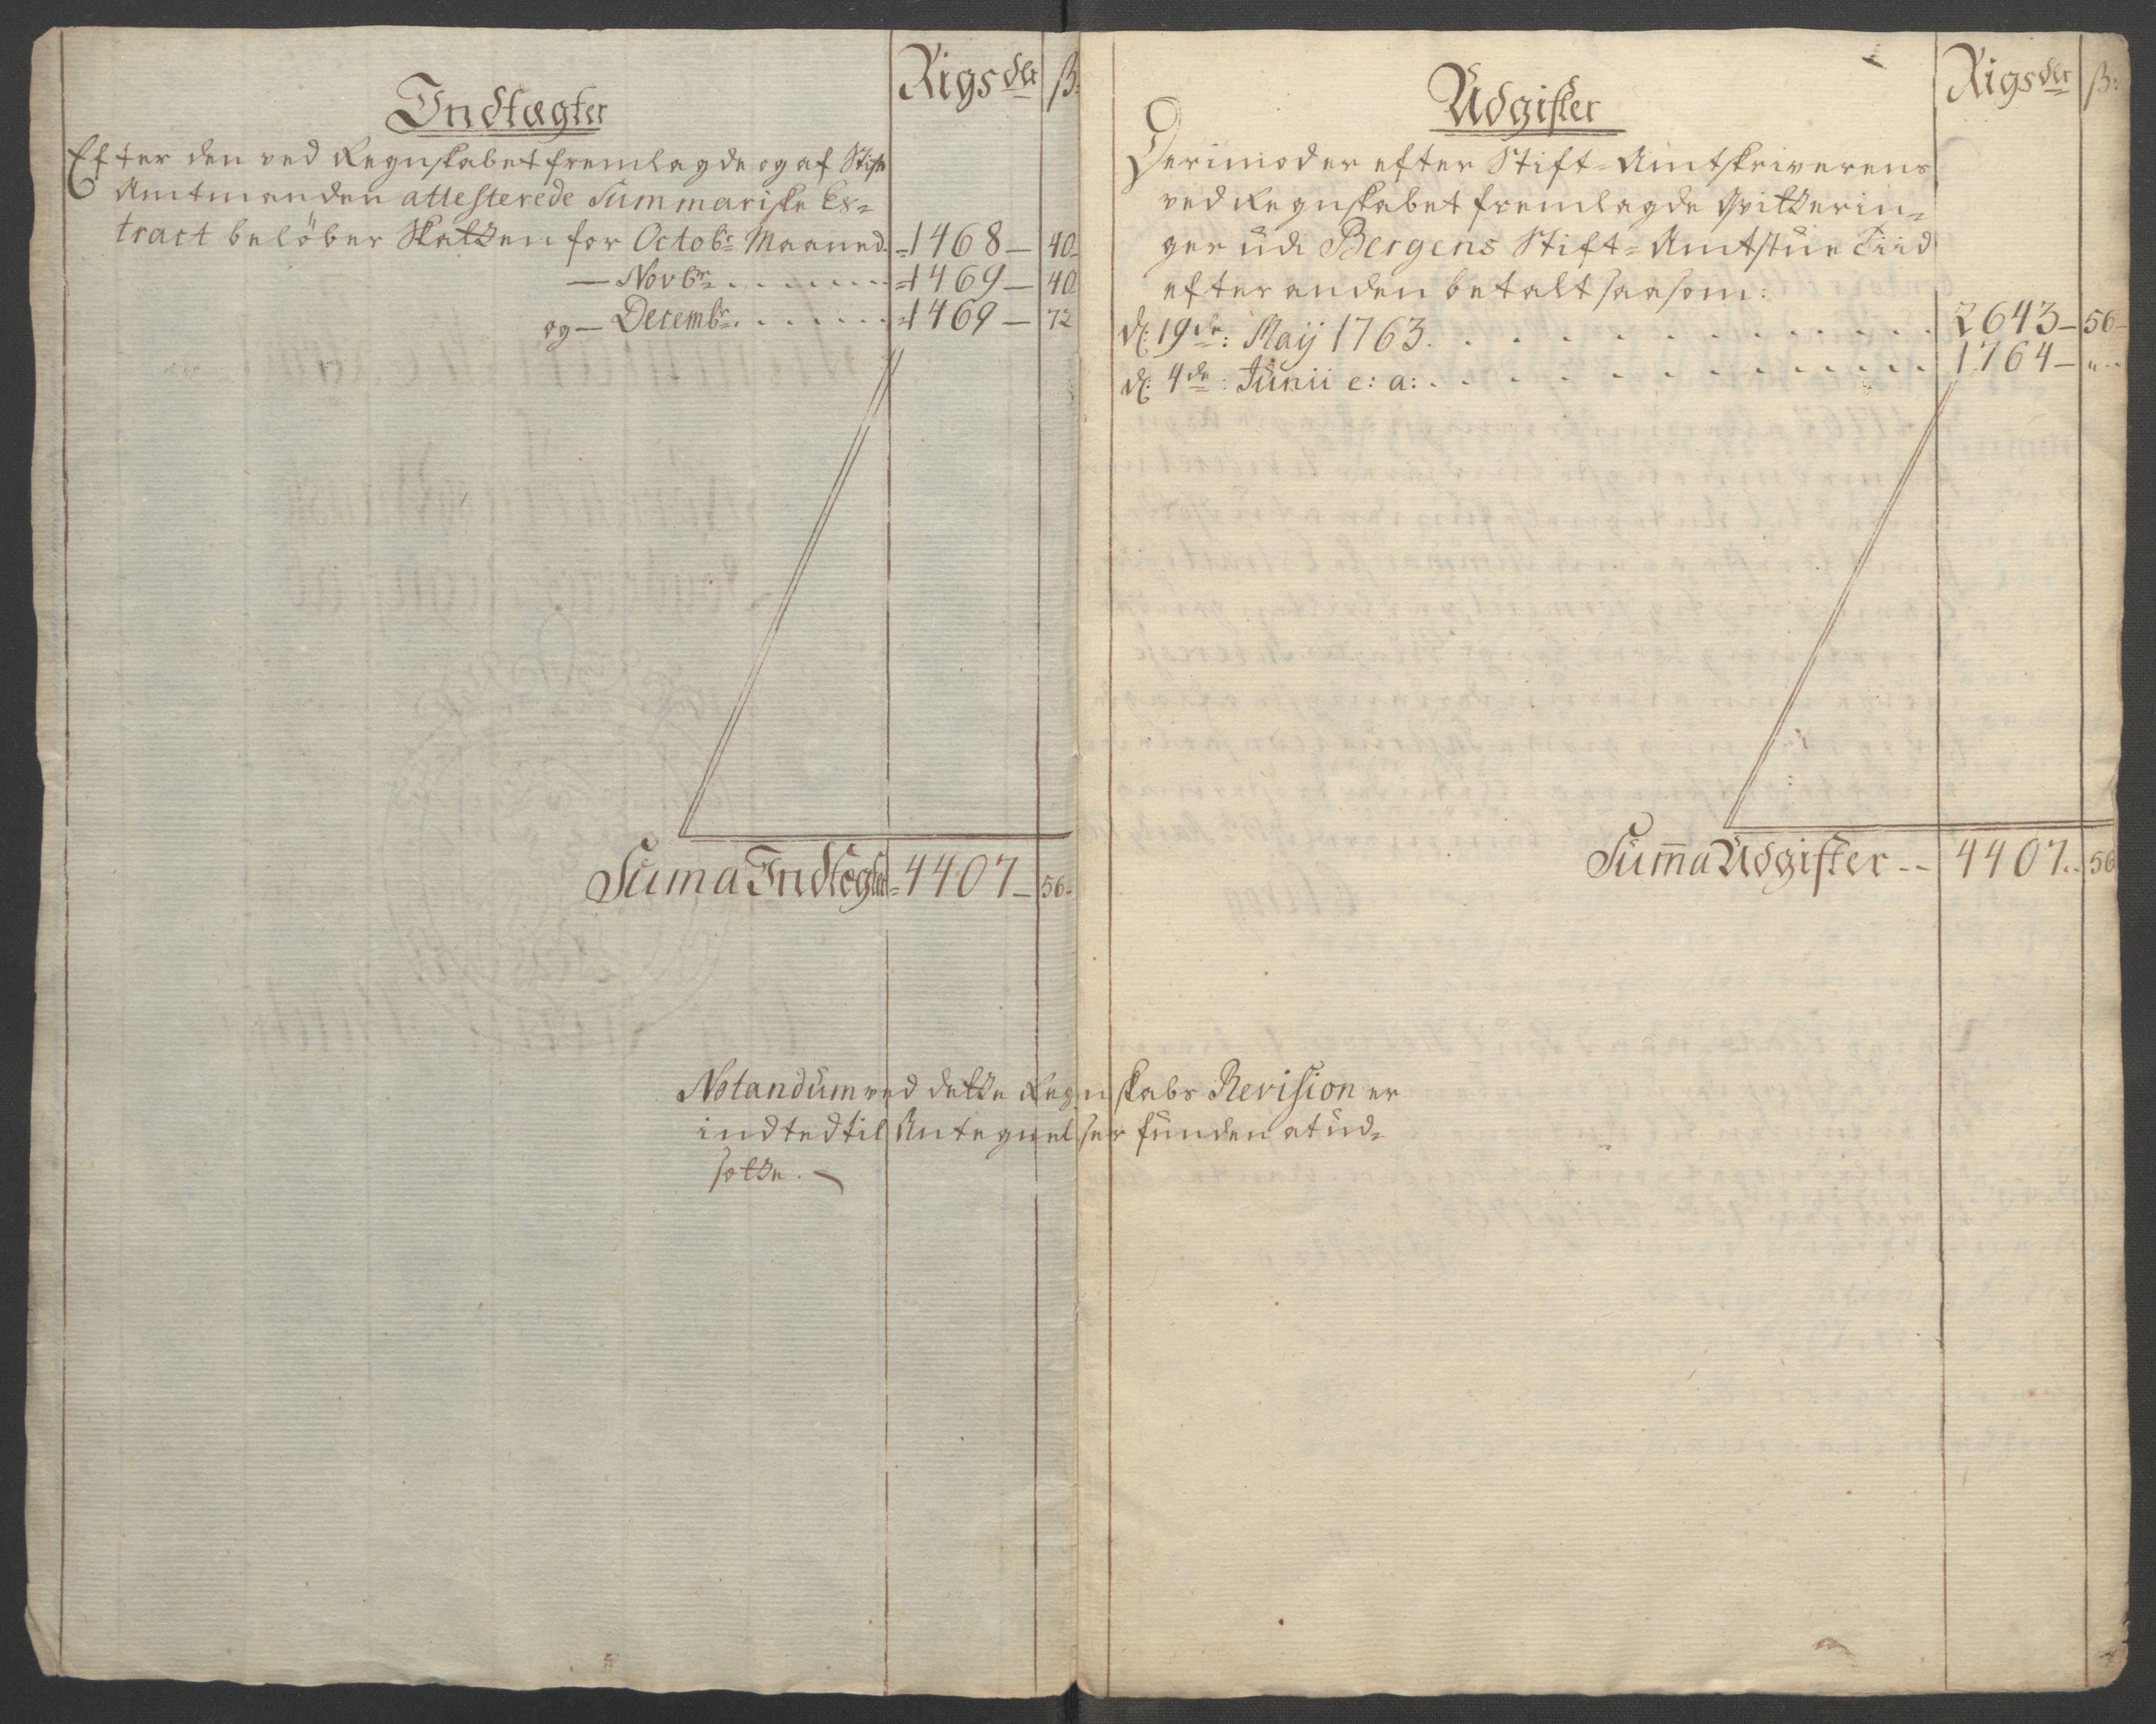 Rigsdlr ß:
Indtægter
Efter den ved Regnskabet fremlagde og af Stift
Amtmanden attesterede Summariske Ex=
tract beløber Skatten for Octobr: Maaned. 1468 – 40
— Novbr: . . . . . . . 1469 – 40
og — Decembr: . . . . . . 1469 – 72
Suma Indtægter 4407 – 56.
Rigsdlr ß:
Udgifter
Derimod er efter Stift=Amtskriverens
ved Regnskabet fremlagde Qvitterin=
ger udi Bergens Stift=Amtstue Tiid
efter anden betalt saasom:
d: 19de: Maij 1763. . . . . . . . . . . 2643 – 56
d: 4de: Junii e: a: . . . . . . . . . . . 1764 – "
Suma Udgifter -- 4407. 56
Notandum ved dette Regnskabs Revision er
indted til Antegnelser funden at ud=
sætte.